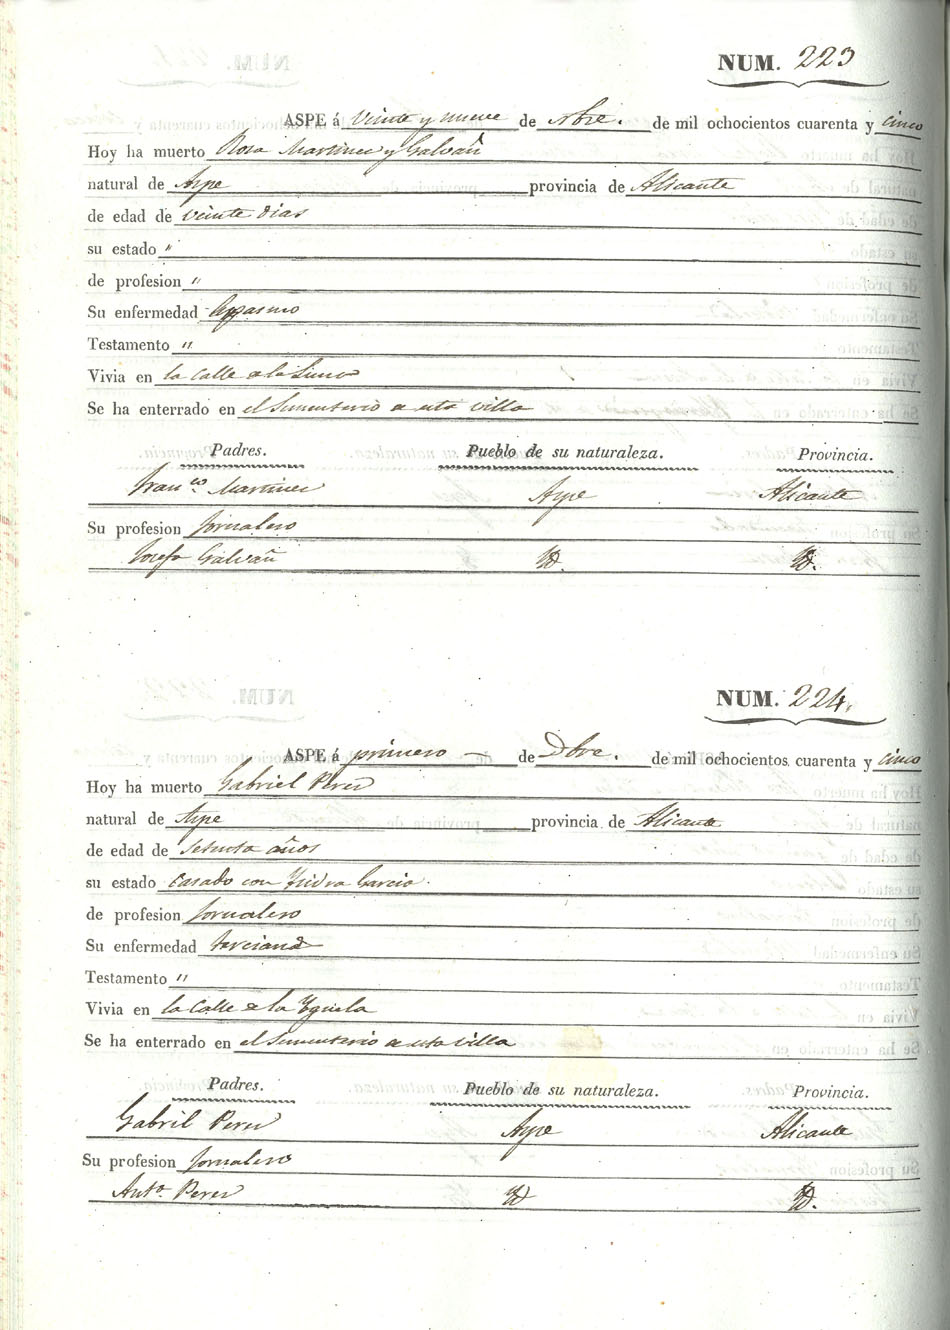 NUM. 223
ASPE á veinte y nueve de Nbre. de mil ochocientos cuarenta y cinco
Hoy ha muerto Rosa Martinez y Galvañ
natural de Aspe provincia de Alicante
de edad de veinte dias
su estado "
de profesion "
Su enfermedad
Testamento "
Vivia en la calle
Se ha enterrado en el Sementerio de esta villa
Padres. Pueblo de su naturaleza. Provincia.
Franco. Martinez Aspe Alicante
Su profesion Jornalero
Josefa Galvañ Id. Id.
NUM. 224.
ASPE á primero de Dbre. de mil ochocientos cuarenta y cinco
Hoy ha muerto Gabriel Perez
natural de Aspe provincia de Alicante
de edad de setenta años
su estado casado con Ysidra Garcia.
de profesion Jornalero
Su enfermedad terciana
Testamento "
Vivia en la Calle de la Yguela
Se ha enterrado en el Sementerio de esta villa
Padres. Pueblo de su naturaleza. Provincia.
Gabriel Perez Aspe Alicante
Su profesion Jornalero
Anta. Perez Id Id.